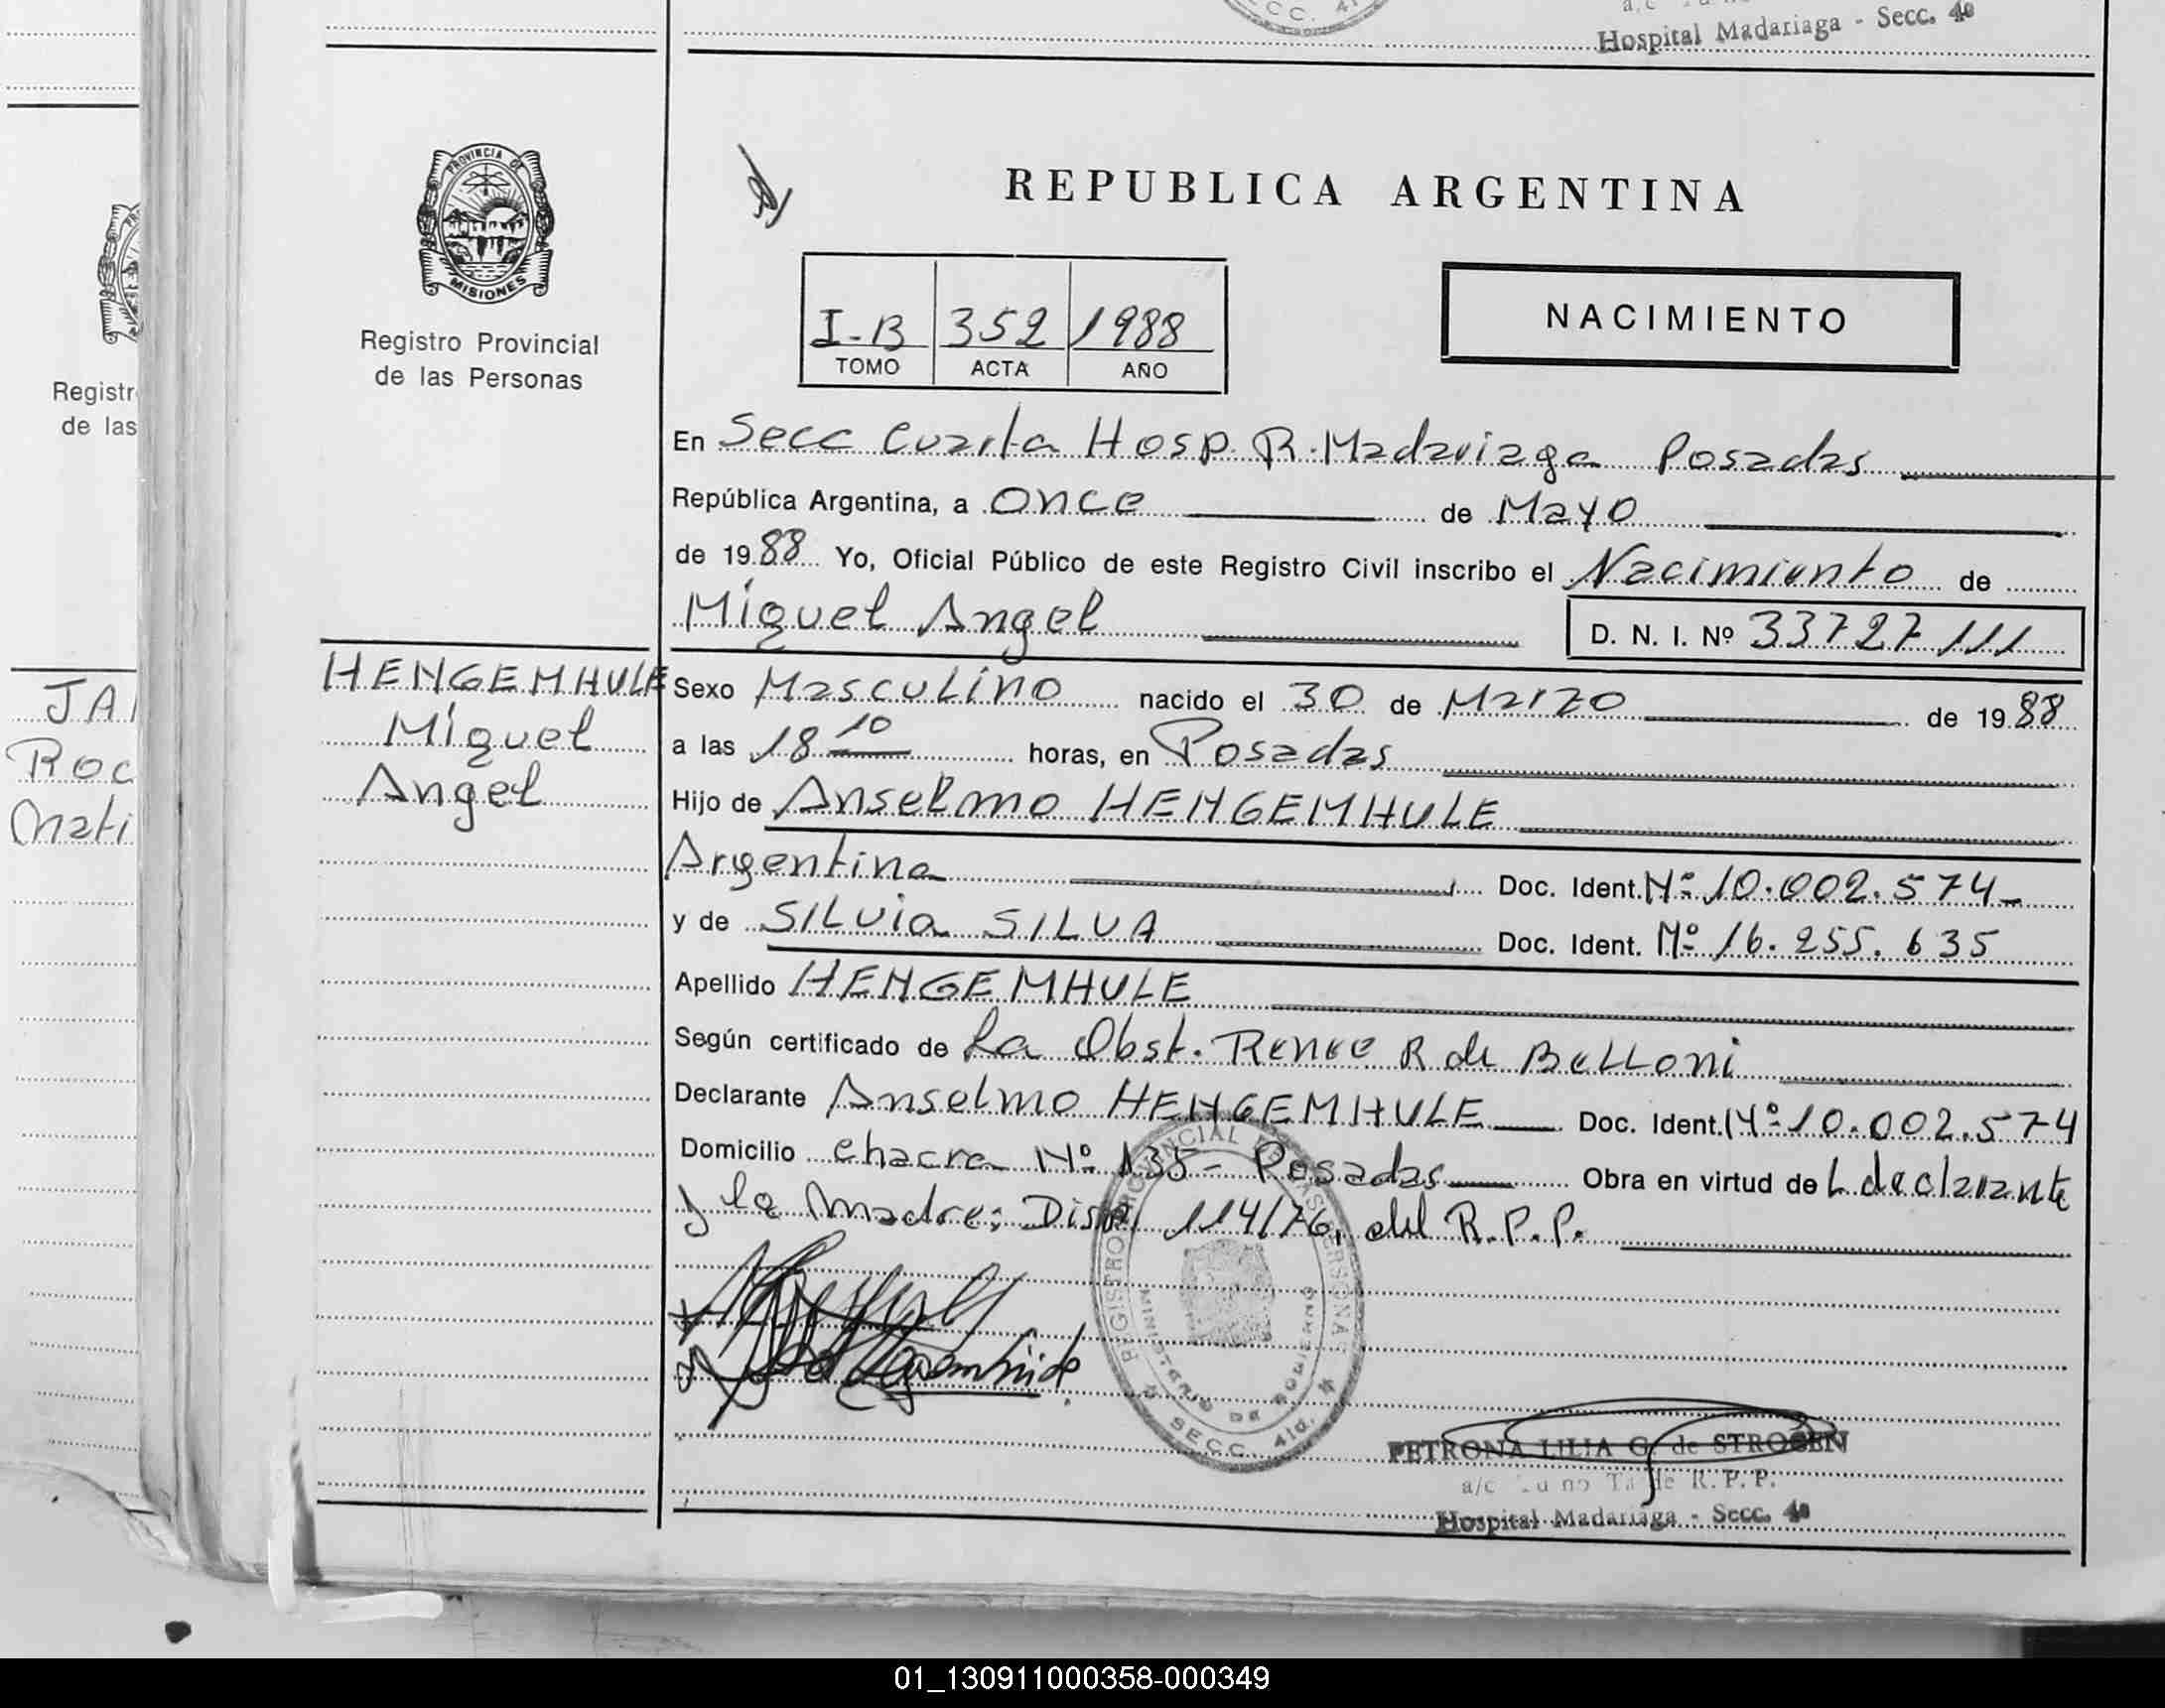 Hospital Madariaga - Secc. 4ª
PROVINCIA DE
MISIONES
Registro Provincial
de las Personas
REPUBLICA ARGENTINA
I-B 352 1988
TOMO ACTA AÑO
NACIMIENTO
En Secc Cuarta Hosp. R. Madariaga Posadas
República Argentina, a once de Mayo
de 1988 Yo, Oficial Público de este Registro Civil inscribo el Nacimiento de
Miguel Angel
D. N. I. Nº 33727111
HENGEMHULE
Miguel
Angel
Sexo Masculino nacido el 30 de Marzo de 1988
a las 18 10 horas, en Posadas
Hijo de Anselmo HENGEMHULE
Argentina Doc. Ident. Nº 10.002.574-
y de SILVIA SILVA Doc. Ident. Nº 16.255.635
Apellido HENGEMHULE
Según certificado de La Obst. Renee R de Belloni
Declarante Anselmo HENGEMHULE Doc. Ident. Nº 10.002.574
Domicilio chacra Nº 135- Posadas Obra en virtud de L declarante
y la madre; Disp. 114/76, del R.P.P.
REGISTRO PROVINCIAL DE LAS PERSONAS
MINISTERIO DE GOBIERNO
SECC. 4ta.
PETRONA LILIA G. de STROBEN
R. P. P.
Hospital Madariaga - Secc. 4ª
Registr
de las
JA
Roc
Mati
01_130911000358-000349